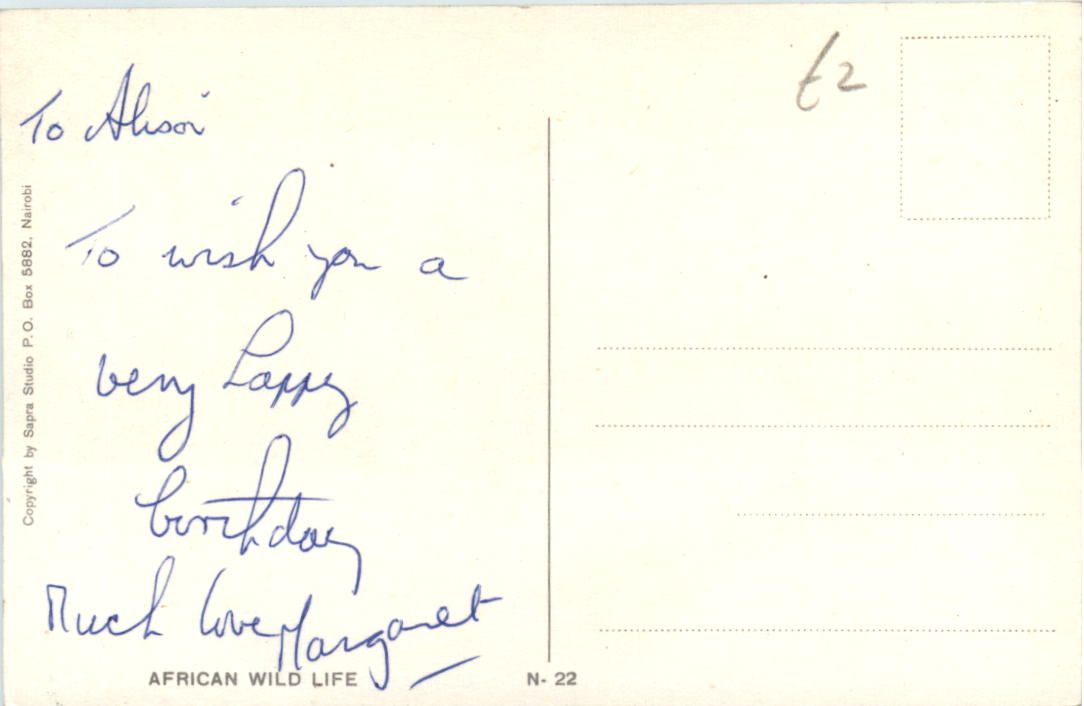 To Alison
To wish you a
very happy
birthday
Much love Margaret
£2
Copyright by Sapra Studio P.O. Box 5882, Nairobi
AFRICAN WILD LIFE
N- 22